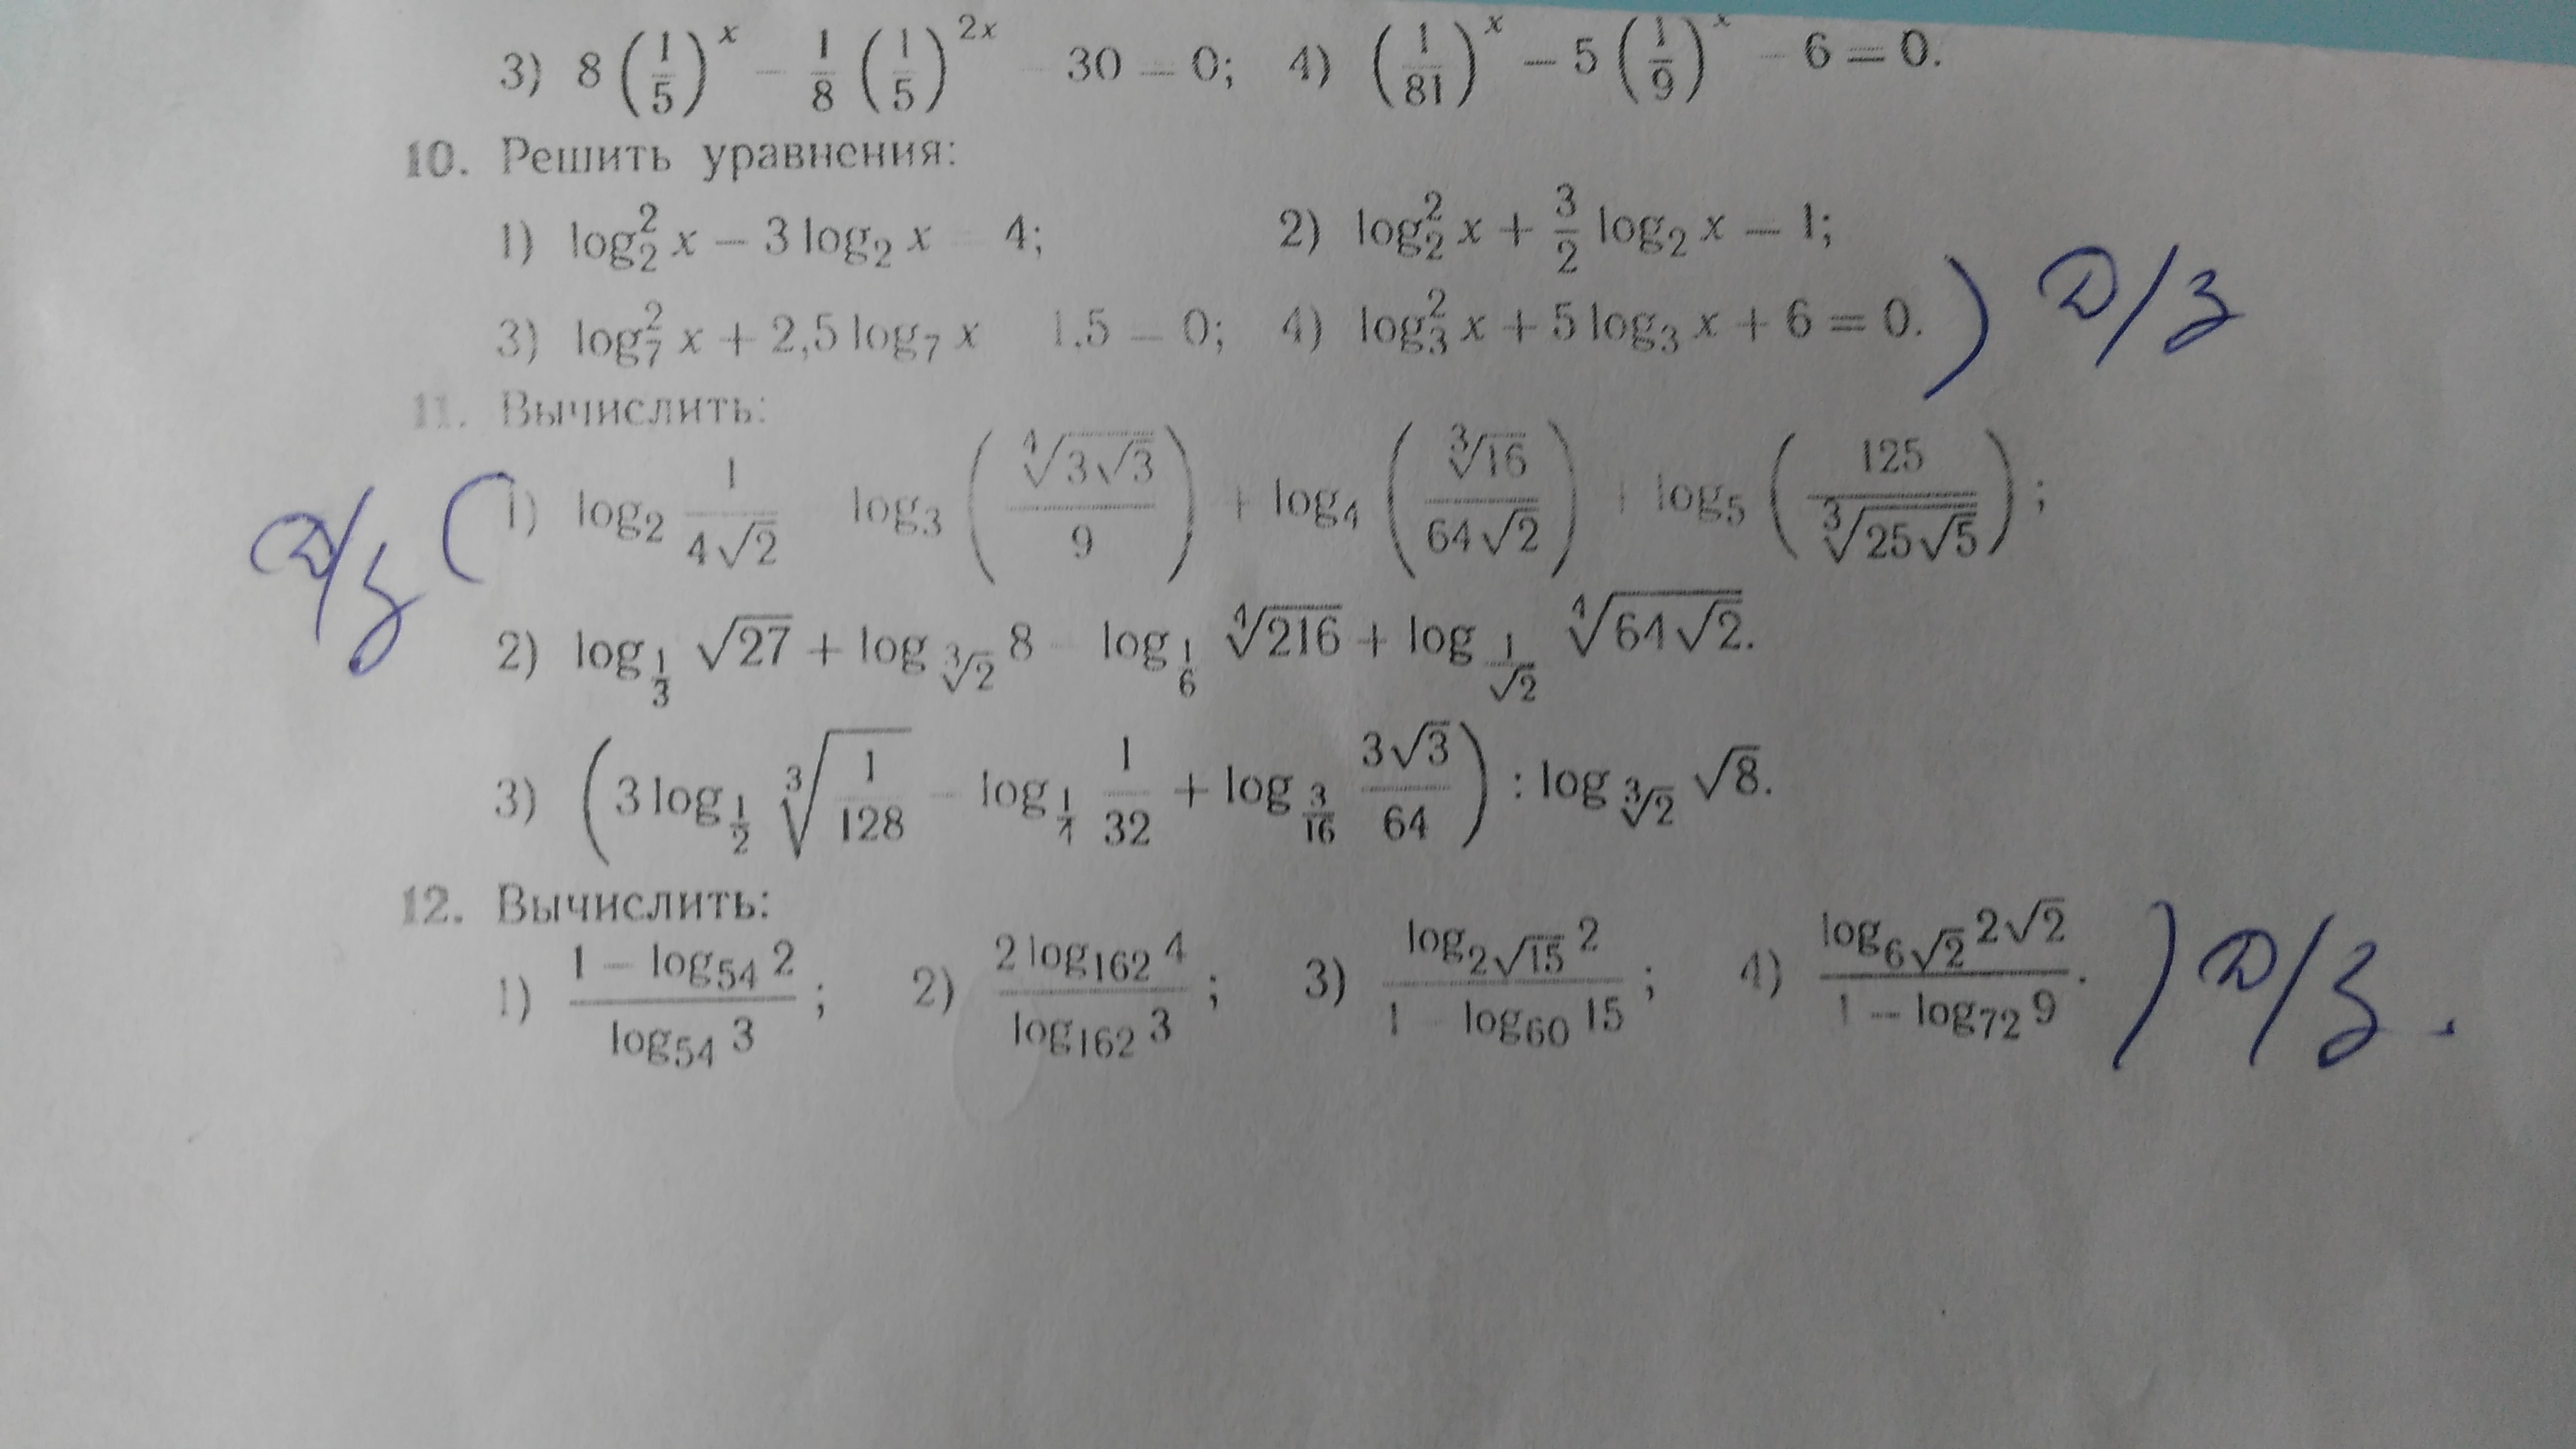 3) 8 (1/5)^x − 1/8 (1/5)^{2x} − 30 = 0; 4) (1/81)^x − 5 (1/9)^x − 6 = 0.
10. Решить уравнения:
1) log₂² x − 3 log₂ x = 4; 2) log₂² x + 3/2 log₂ x = 1;
3) log₇² x + 2,5 log₇ x − 1,5 = 0; 4) log₃² x + 5 log₃ x + 6 = 0. ) Д/з
11. Вычислить:
Д/з ( 1) log₂ 1/(4√2) − log₃ (∜(3√3)/9) + log₄ (∛16/(64√2)) + log₅ (125/∛(25√5));
2) log_{1/3} √27 + log_{∛2} 8 − log_{1/6} ∜216 + log_{1/√2} ∜(64√2).
3) (3 log_{1/2} ∛(1/128) − log_{1/4} 1/32 + log_{3/16} 3√3/64) : log_{∛2} √8.
12. Вычислить:
1) (1 − log₅₄ 2)/(log₅₄ 3); 2) (2 log₁₆₂ 4)/(log₁₆₂ 3); 3) (log_{2√15} 2)/(1 − log₆₀ 15); 4) (log_{6√2} 2√2)/(1 − log₇₂ 9). ) Д/з.